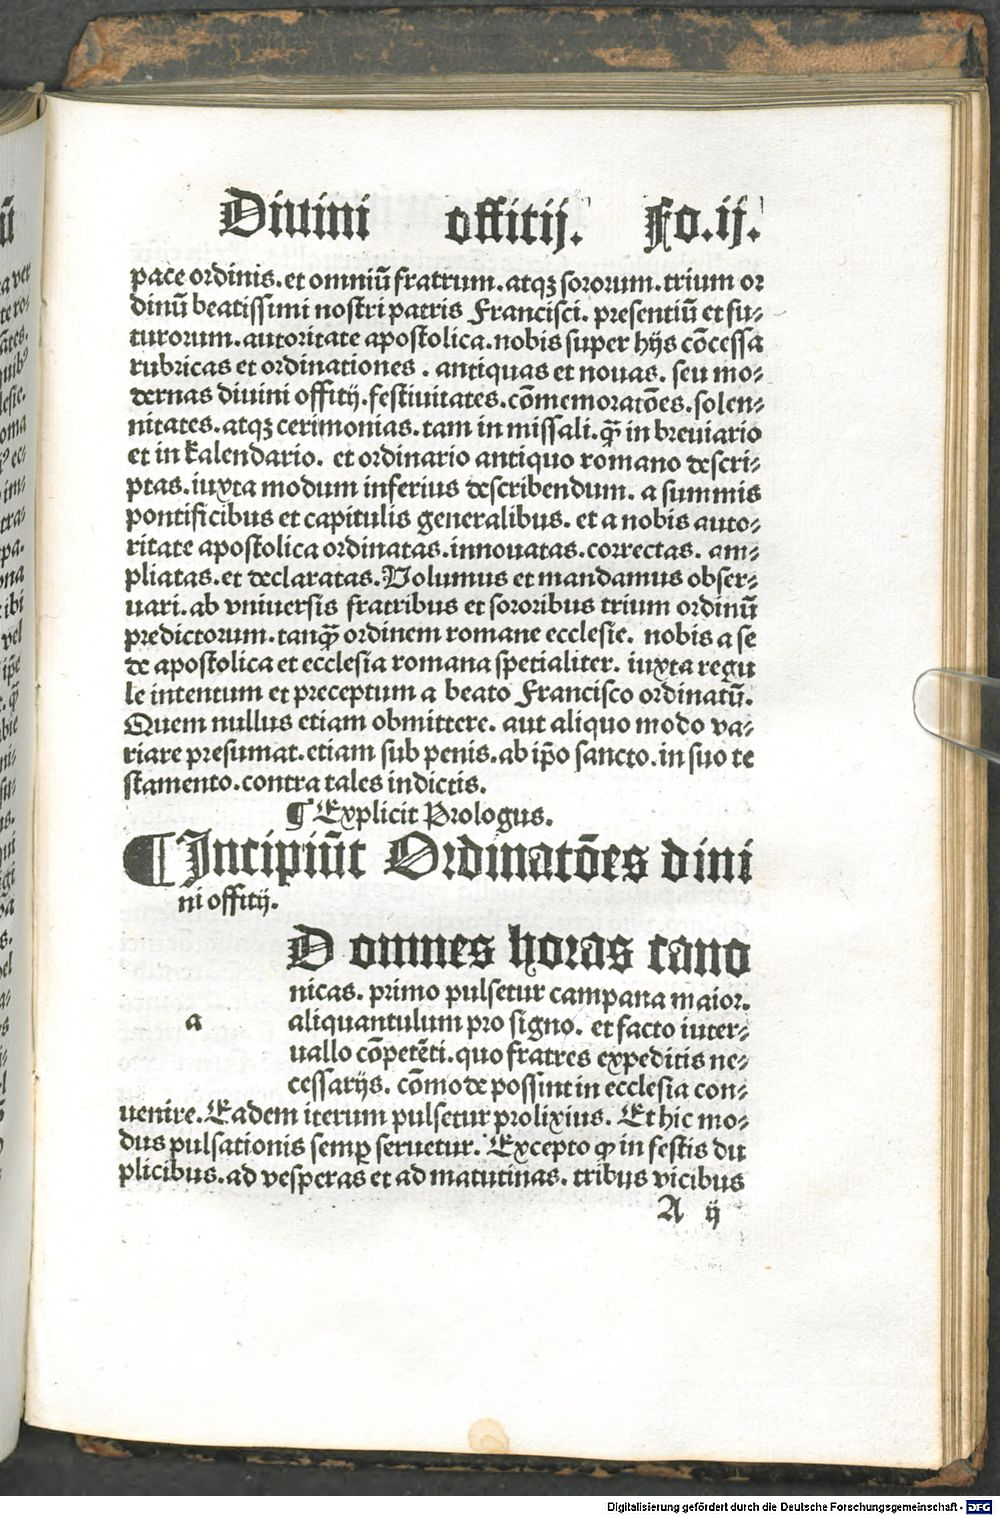 Diuini offitij. Fo.ij.
pace ordinis. et omniū fratrum. atqȝ sororum. trium or
dinū beatissimi nostri patris Francisci. presentiū et fu-
turorum. autoritate apostolica. nobis super hijs cōcessa
rubricas et ordinationes . antiquas et nouas. seu mo-
dernas diuini offitij. festiuitates. cōmemoratōes. solen-
nitates. atqȝ cerimonias. tam in missali. qꝫ̄ in breuiario
et in kalendario. et ordinario antiquo romano descri-
ptas. iuxta modum inferius describendum. a summis
pontificibus et capitulis generalibus. et a nobis auto-
ritate apostolica ordinatas. innouatas. correctas. am-
pliatas. et declaratas. Volumus et mandamus obser-
uari. ab vniuersis fratribus et sororibus trium ordinū
predictorum. tanqꝫ̄ ordinem romane ecclesie. nobis a se
de apostolica et ecclesia romana spetialiter. iuxta regu
le intentum et preceptum a beato Francisco ordinatū.
Quem nullus etiam obmittere. aut aliquo modo va-
riare presumat. etiam sub penis. ab ip̄o sancto. in suo te
stamento. contra tales indictis.
¶ Explicit Prologus.
¶ Incipiūt Ordinatōes diui
ni offitij.
D omnes horas cano
nicas. primo pulsetur campana maior.
a aliquantulum pro signo. et facto iuter-
uallo cōpetēti. quo fratres expeditis ne-
cessarijs. cōmode possint in ecclesia con-
uenire. Eadem iterum pulsetur prolixius. Et hic mo-
dus pulsationis semꝑ seruetur. Excepto ꝙ in festis du
plicibus. ad vesperas et ad matutinas. tribus vicibus
A ij
ū
ibi
vel
Digitalisierung gefördert durch die Deutsche Forschungsgemeinschaft - DFG